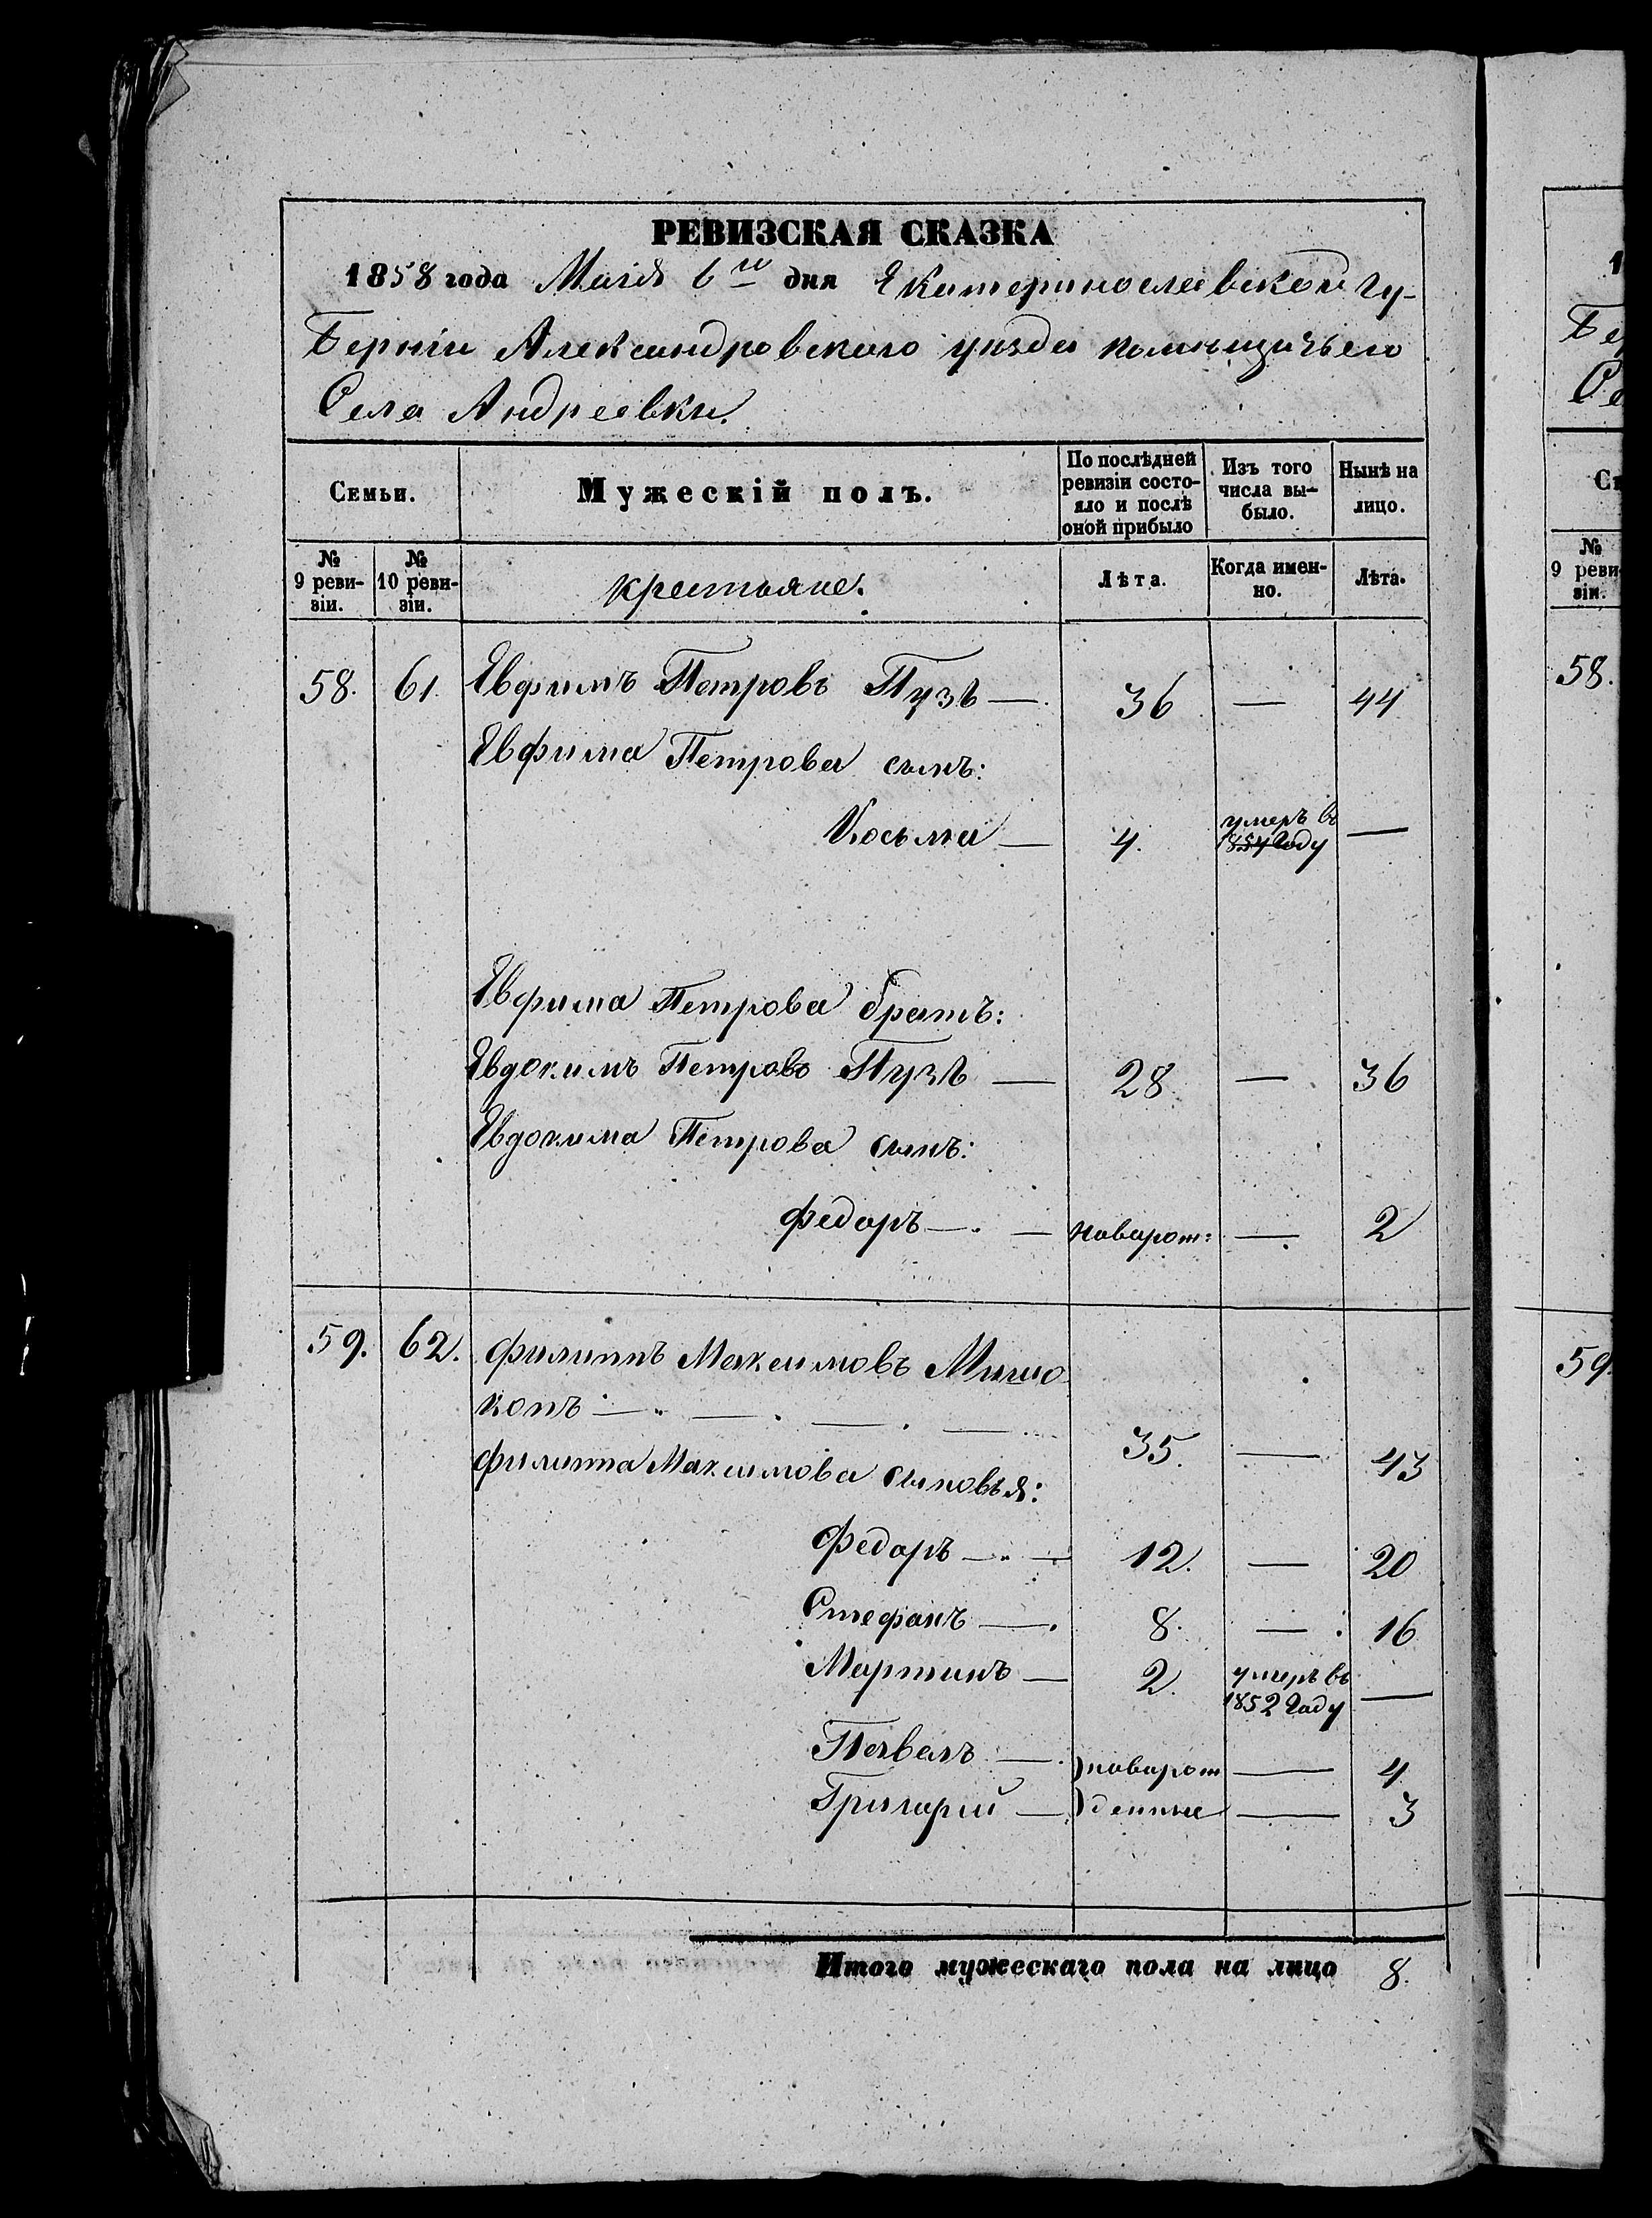 РЕВИЗСКАЯ СКАЗКА
1858 года Маія 6го дня Екатеринославской Гу-
берніи Александровского уезда помѣщичьего
Села Андреевки.
Семьи.
Мужескій полъ.
По послѣдней
ревизіи состо-
яло и послѣ
оной прибыло
Изъ того
числа вы-
было.
Нынѣ на
лицо.
№
9 реви-
зіи.
№
10 реви-
зіи.
крестьяне.
Лѣта.
Когда имен-
но.
Лѣта.
58. 61. Евфимъ Петровъ Пузь — 36 — 44
Евфима Петрова сынъ:
Косьма — 4. умеръ въ —
1854 Году
Евфима Петрова братъ:
Евдокимъ Петровъ Пузь — 28 — 36
Евдокима Петрова сынъ:
Федоръ — — новорож: — 2
59. 62. Филиппъ Максимовъ
— — — — 35. — 43
Филиппа Максимова сыновья:
Федоръ — — 12. — 20
Стефанъ — 8. — 16
Мартинъ — 2. умеръ въ —
1852 Году
Павелъ — новорож — 4
Григорий — денные — 3
Итого мужескаго пола на лицо 8.
1
Бе
Се
Се
№
9 реви
зіи.
58.
59.